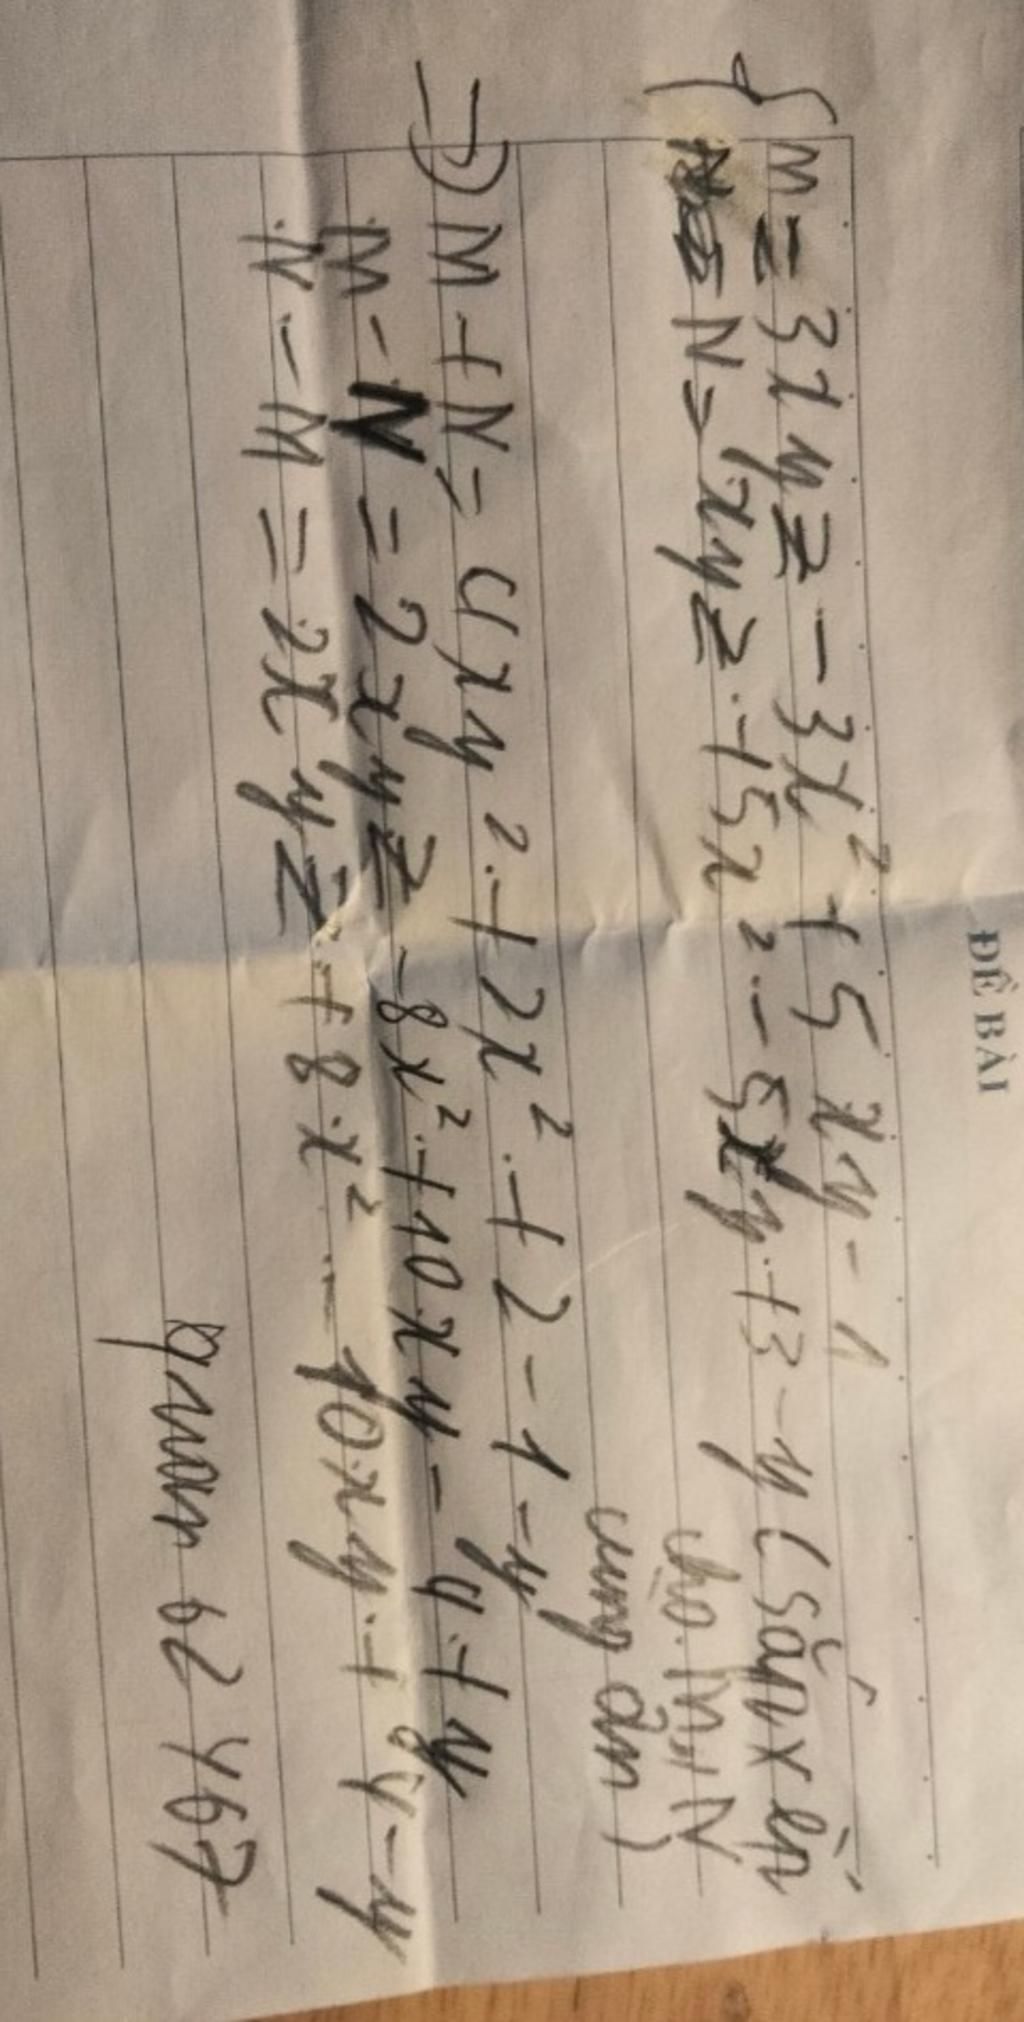 ĐỀ BÀI
{ M = 3xyz - 3x² + 5xy - 1
N = xyz + 5x² - 5xy + 3 - y (sắp xếp
cho M, N
cùng ẩn)
=> M + N = 4xyz + 2x² + 2 - 1 - y
M - N = 2xyz - 8x² + 10xy - 4 + y
N - M = 2xyz + 8x² - 10xy + 4 - y
quan 62467